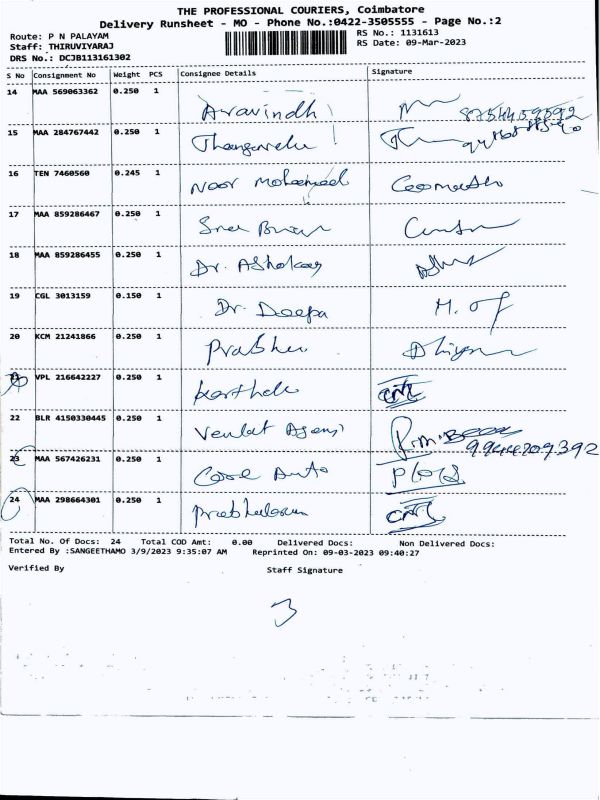 THE PROFESSIONAL COURIERS, Coimbatore
Delivery Runsheet - MO - Phone No.:0422-3505555 - Page No.:2
Route: P N PALAYAM
RS No.: 1131613
Staff: THIRUVIYARAJ
RS Date: 09-Mar-2023
DRS No.: DCJB113161302
S No Consignment No Weight PCS Consignee Details Signature
14 MAA 569063362 0.250 1 Aravindh
15 MAA 284767442 0.250 1 Thangavelu
16 TEN 7460560 0.245 1 Noor Mohammed
17 MAA 859286467 0.250 1 Sree
18 MAA 859286455 0.250 1 Dr. Ashokan
19 CGL 3013159 0.150 1 Dr. Deepa
20 KCM 21241866 0.250 1 Prabhu
VPL 216642227 0.250 1
22 BLR 4150330445 0.250 1 Venkat 9944209392
23 MAA 567426231 0.250 1 Auto
24 MAA 298664301 0.250 1
Total No. Of Docs: 24 Total COD Amt: 0.00 Delivered Docs: Non Delivered Docs:
Entered By :SANGEETHAMO 3/9/2023 9:35:07 AM Reprinted On: 09-03-2023 09:40:27
Verified By Staff Signature